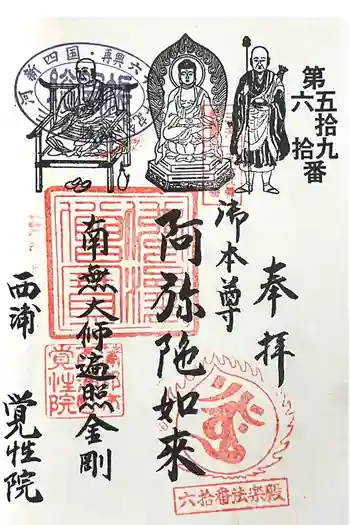 第五拾九
六拾番
奉拝
御本尊
阿弥陀如来
南無大师遍照金剛
西浦 覚性院
新四国・再興六
覚性院
六拾番法楽殿